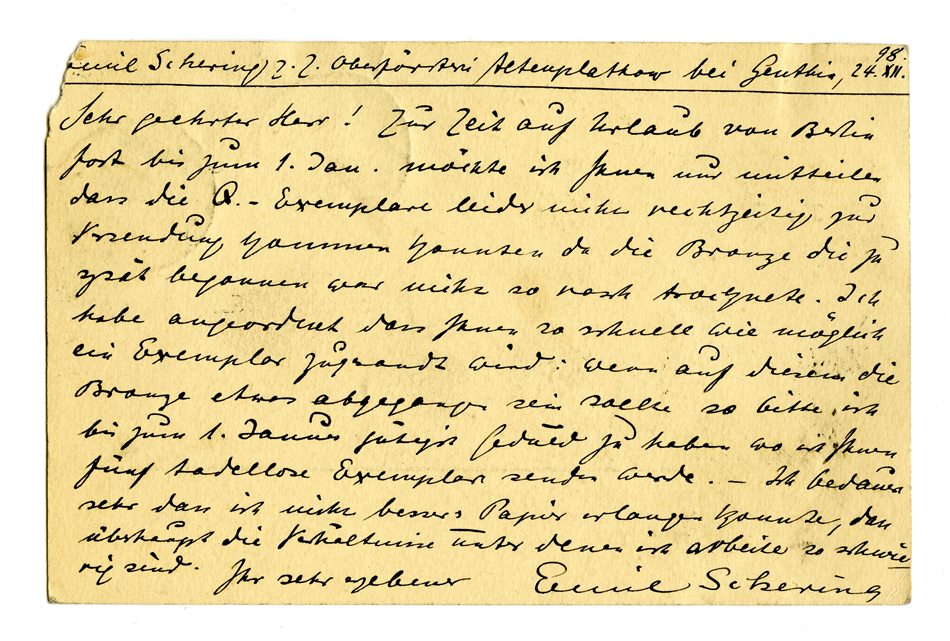 Emil Schering z. Z. Oberförsterei Altenplathow bei Genthin, 24. XII. 98.
Sehr geehrter Herr! Zur Zeit auf Urlaub von Berlin
fort bis zum 1. Jan. möchte ich Ihnen nur mitteilen
dass die Q.- Exemplare leider nicht rechtzeitig zur
Versendung kommen konnten da die Bronze die zu
spät begonnen war nicht so rasch trocknete. Ich
habe angeordnet dass Ihnen so schnell wie möglich
ein Exemplar zugesandt wird. wenn auf diesem die
Bronze etwas abgegangen sein sollte so bitte ich
bis zum 1. Januar gütigst Geduld zu haben wo ich Ihnen
fünf tadellose Exemplare senden werde. – Ich bedauere
sehr dass ich nicht besseres Papier erlangen konnte, dass
überhaupt die Verhältnisse unter denen ich arbeite so schwie
rig sind. Ihr sehr ergebener Emil Schering